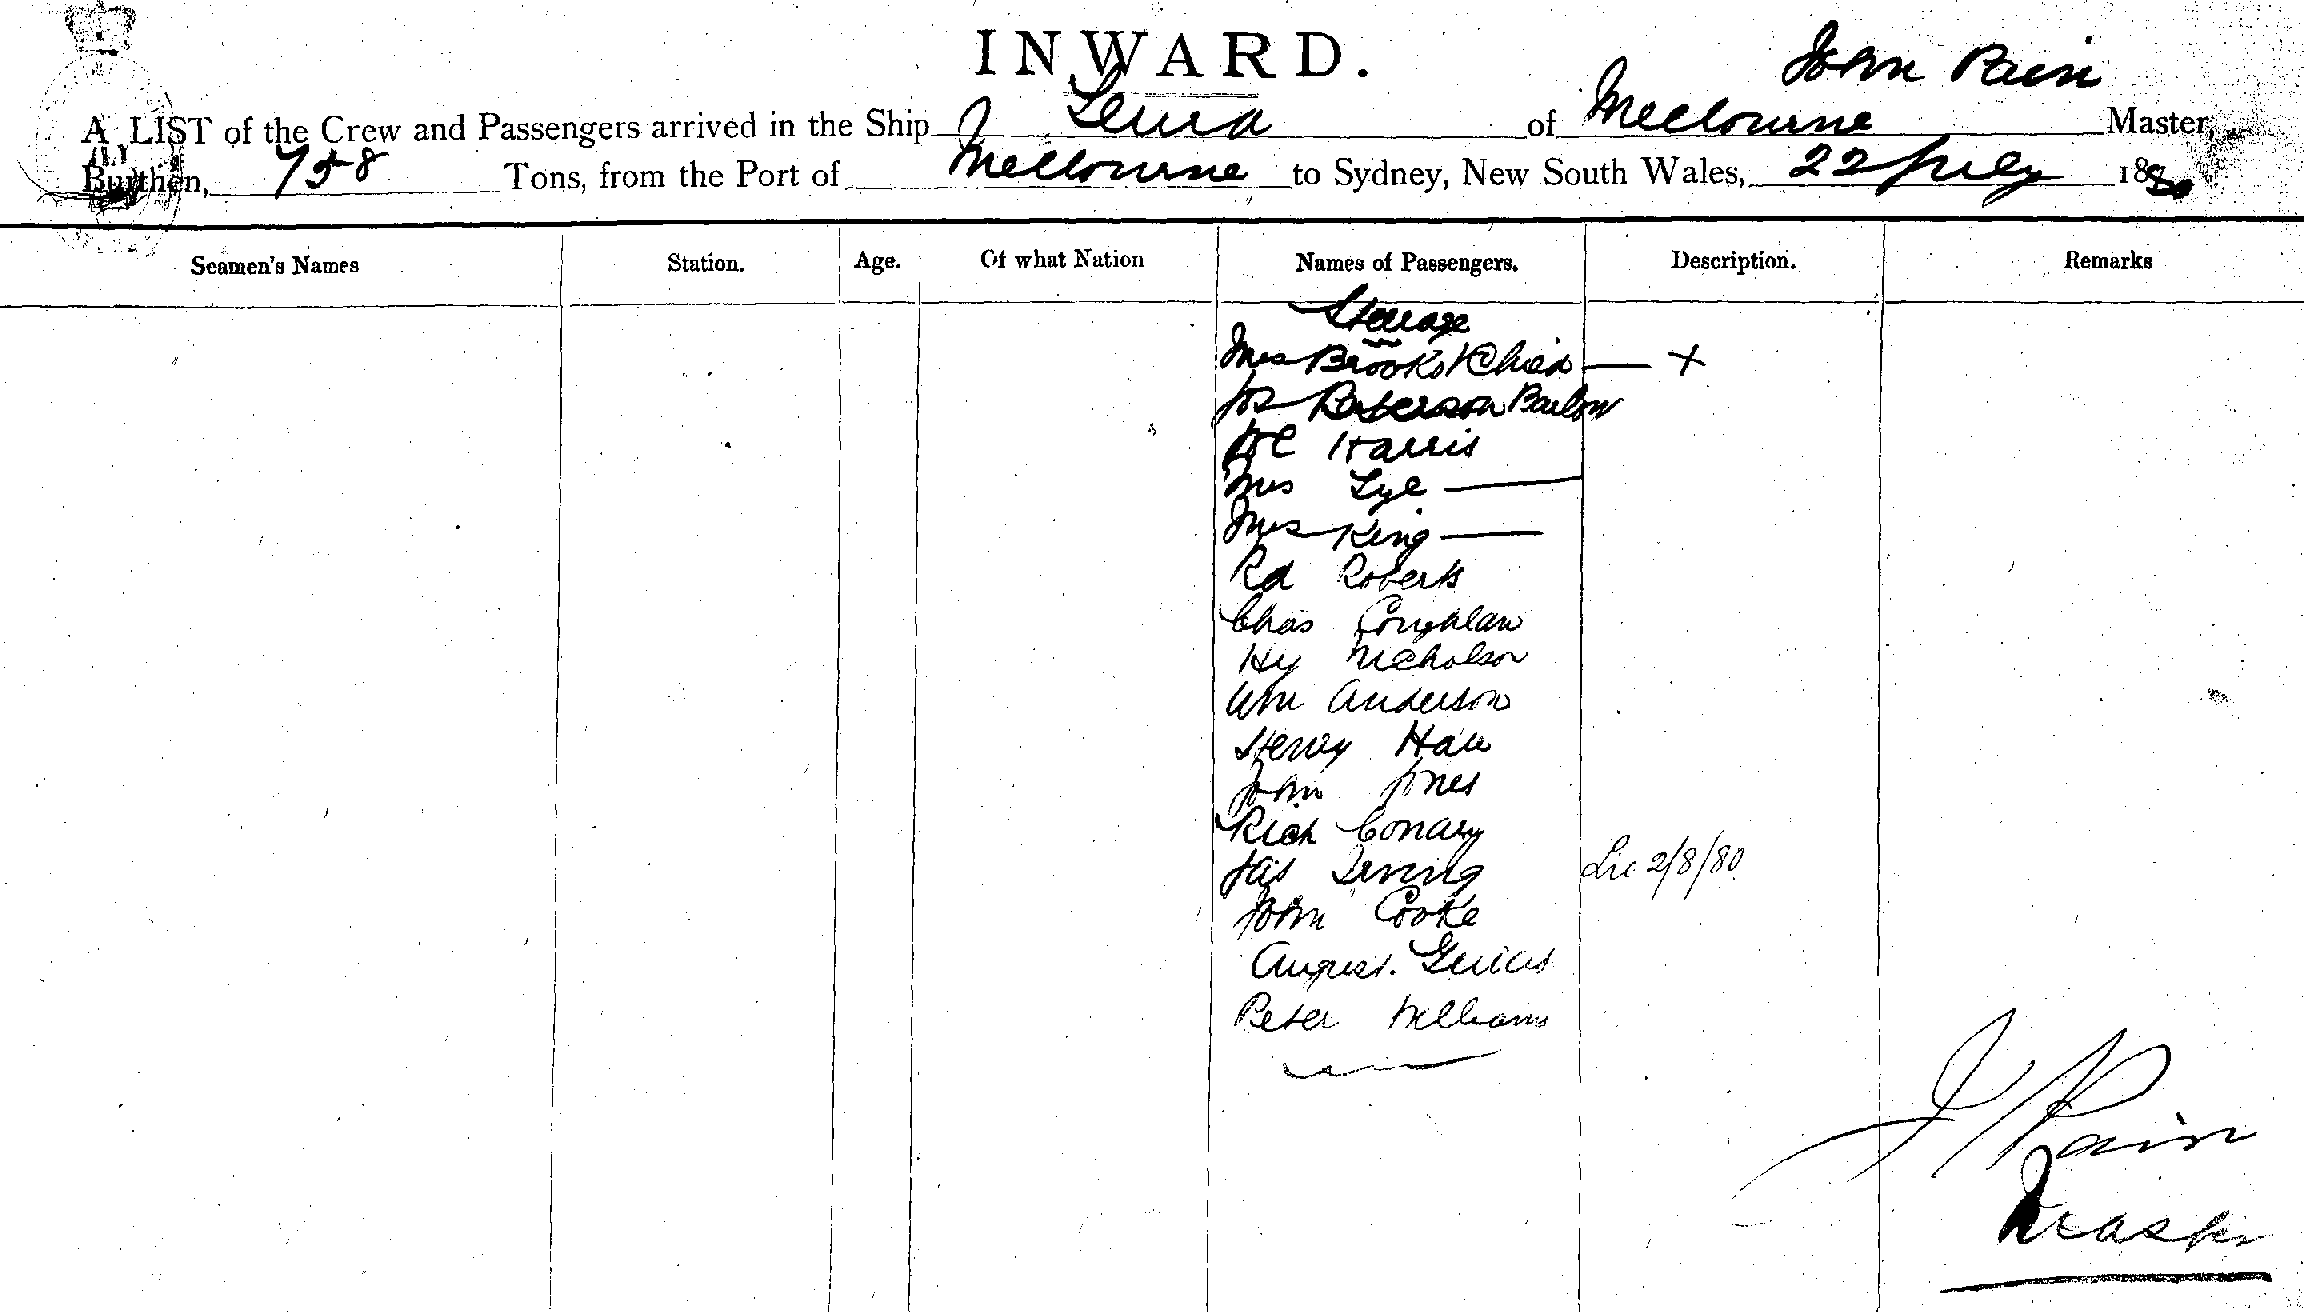 INWARD.
John Pain
A LIST of the Crew and Passengers arrived in the Ship Leura of Melbourne Master,
Burthen, 758 Tons, from the Port of Melbourne to Sydney, New South Wales, 22 July 1880
Seamen's Names Station. Age. Of what Nation Names of Passengers. Description. Remarks
Steerage
Mrs Brooks & Child — X
Jos Barlow
Harris
Mrs Lye —
Mrs King —
Rd Roberts
Chas Coughlan
Hy Nicholson
Wm Anderson
Henry Hall
John Jones
Rich Conary
Jas Irving 2/8/80
John Cooke
August.
Peter Williams
J Pain
Master